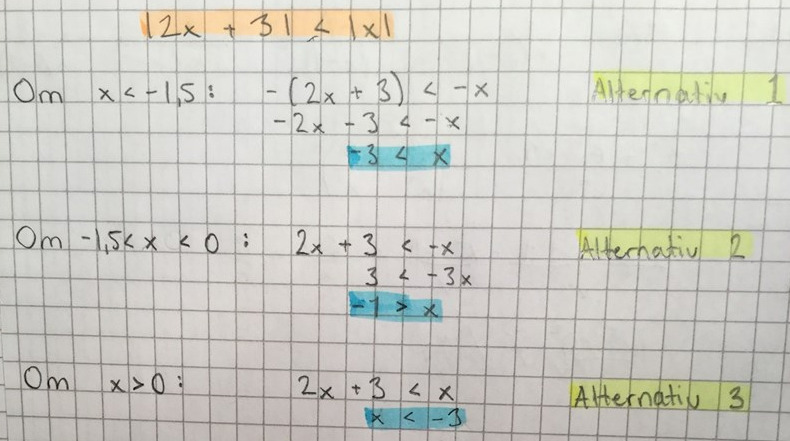 |2x + 3| < |x|
Om x < -1,5 : -(2x + 3) < -x Alternativ 1
-2x - 3 < -x
-3 < x
Om -1,5 < x < 0 : 2x + 3 < -x Alternativ 2
3 < -3x
-1 > x
Om x > 0 : 2x + 3 < x Alternativ 3
x < -3